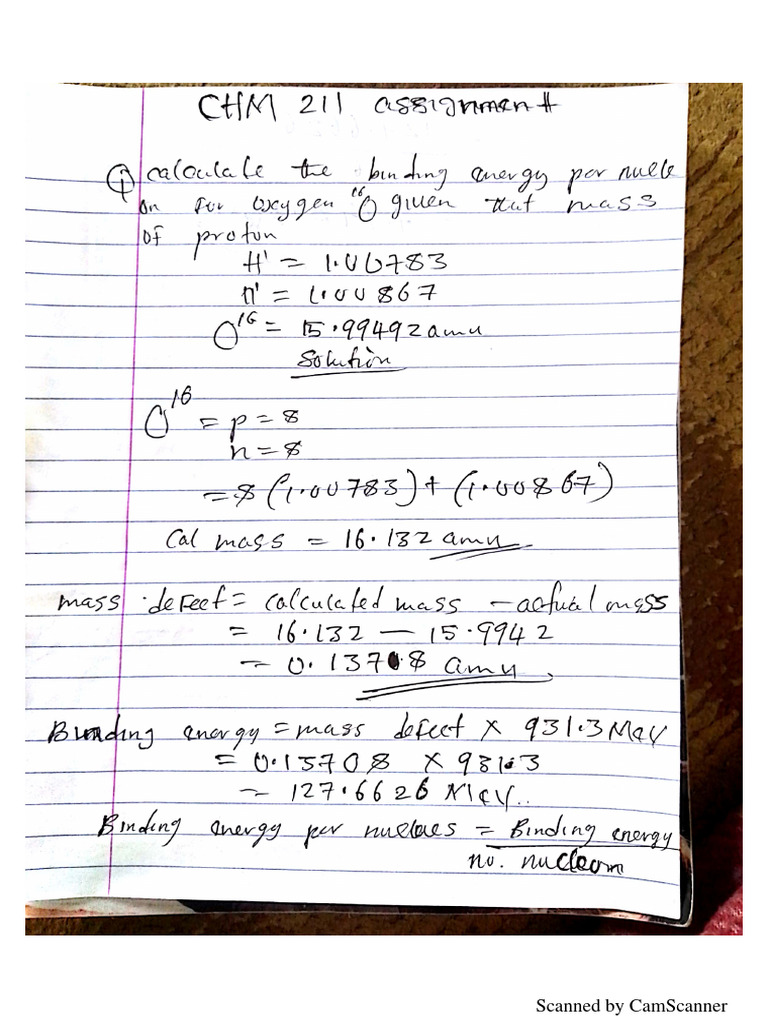 CHM 211 assignment
① calculate the binding energy per nucle
on for oxygen ¹⁶O given that mass
of proton
H¹ = 1.00783
n¹ = 1.00867
O¹⁶ = 15.99492amu
Solution
O¹⁶ = p = 8
n = 8
= 8 (1.00783) + (1.00867)
Cal mass = 16.132 amu
mass defect = calculated mass - actual mass
= 16.132 - 15.9942
= 0.13708 amu
Binding energy = mass defect × 931.3 MeV
= 0.13708 × 931.3
= 127.6626 MeV..
Binding energy per nucloes = Binding energy
no. nucleom
Scanned by CamScanner